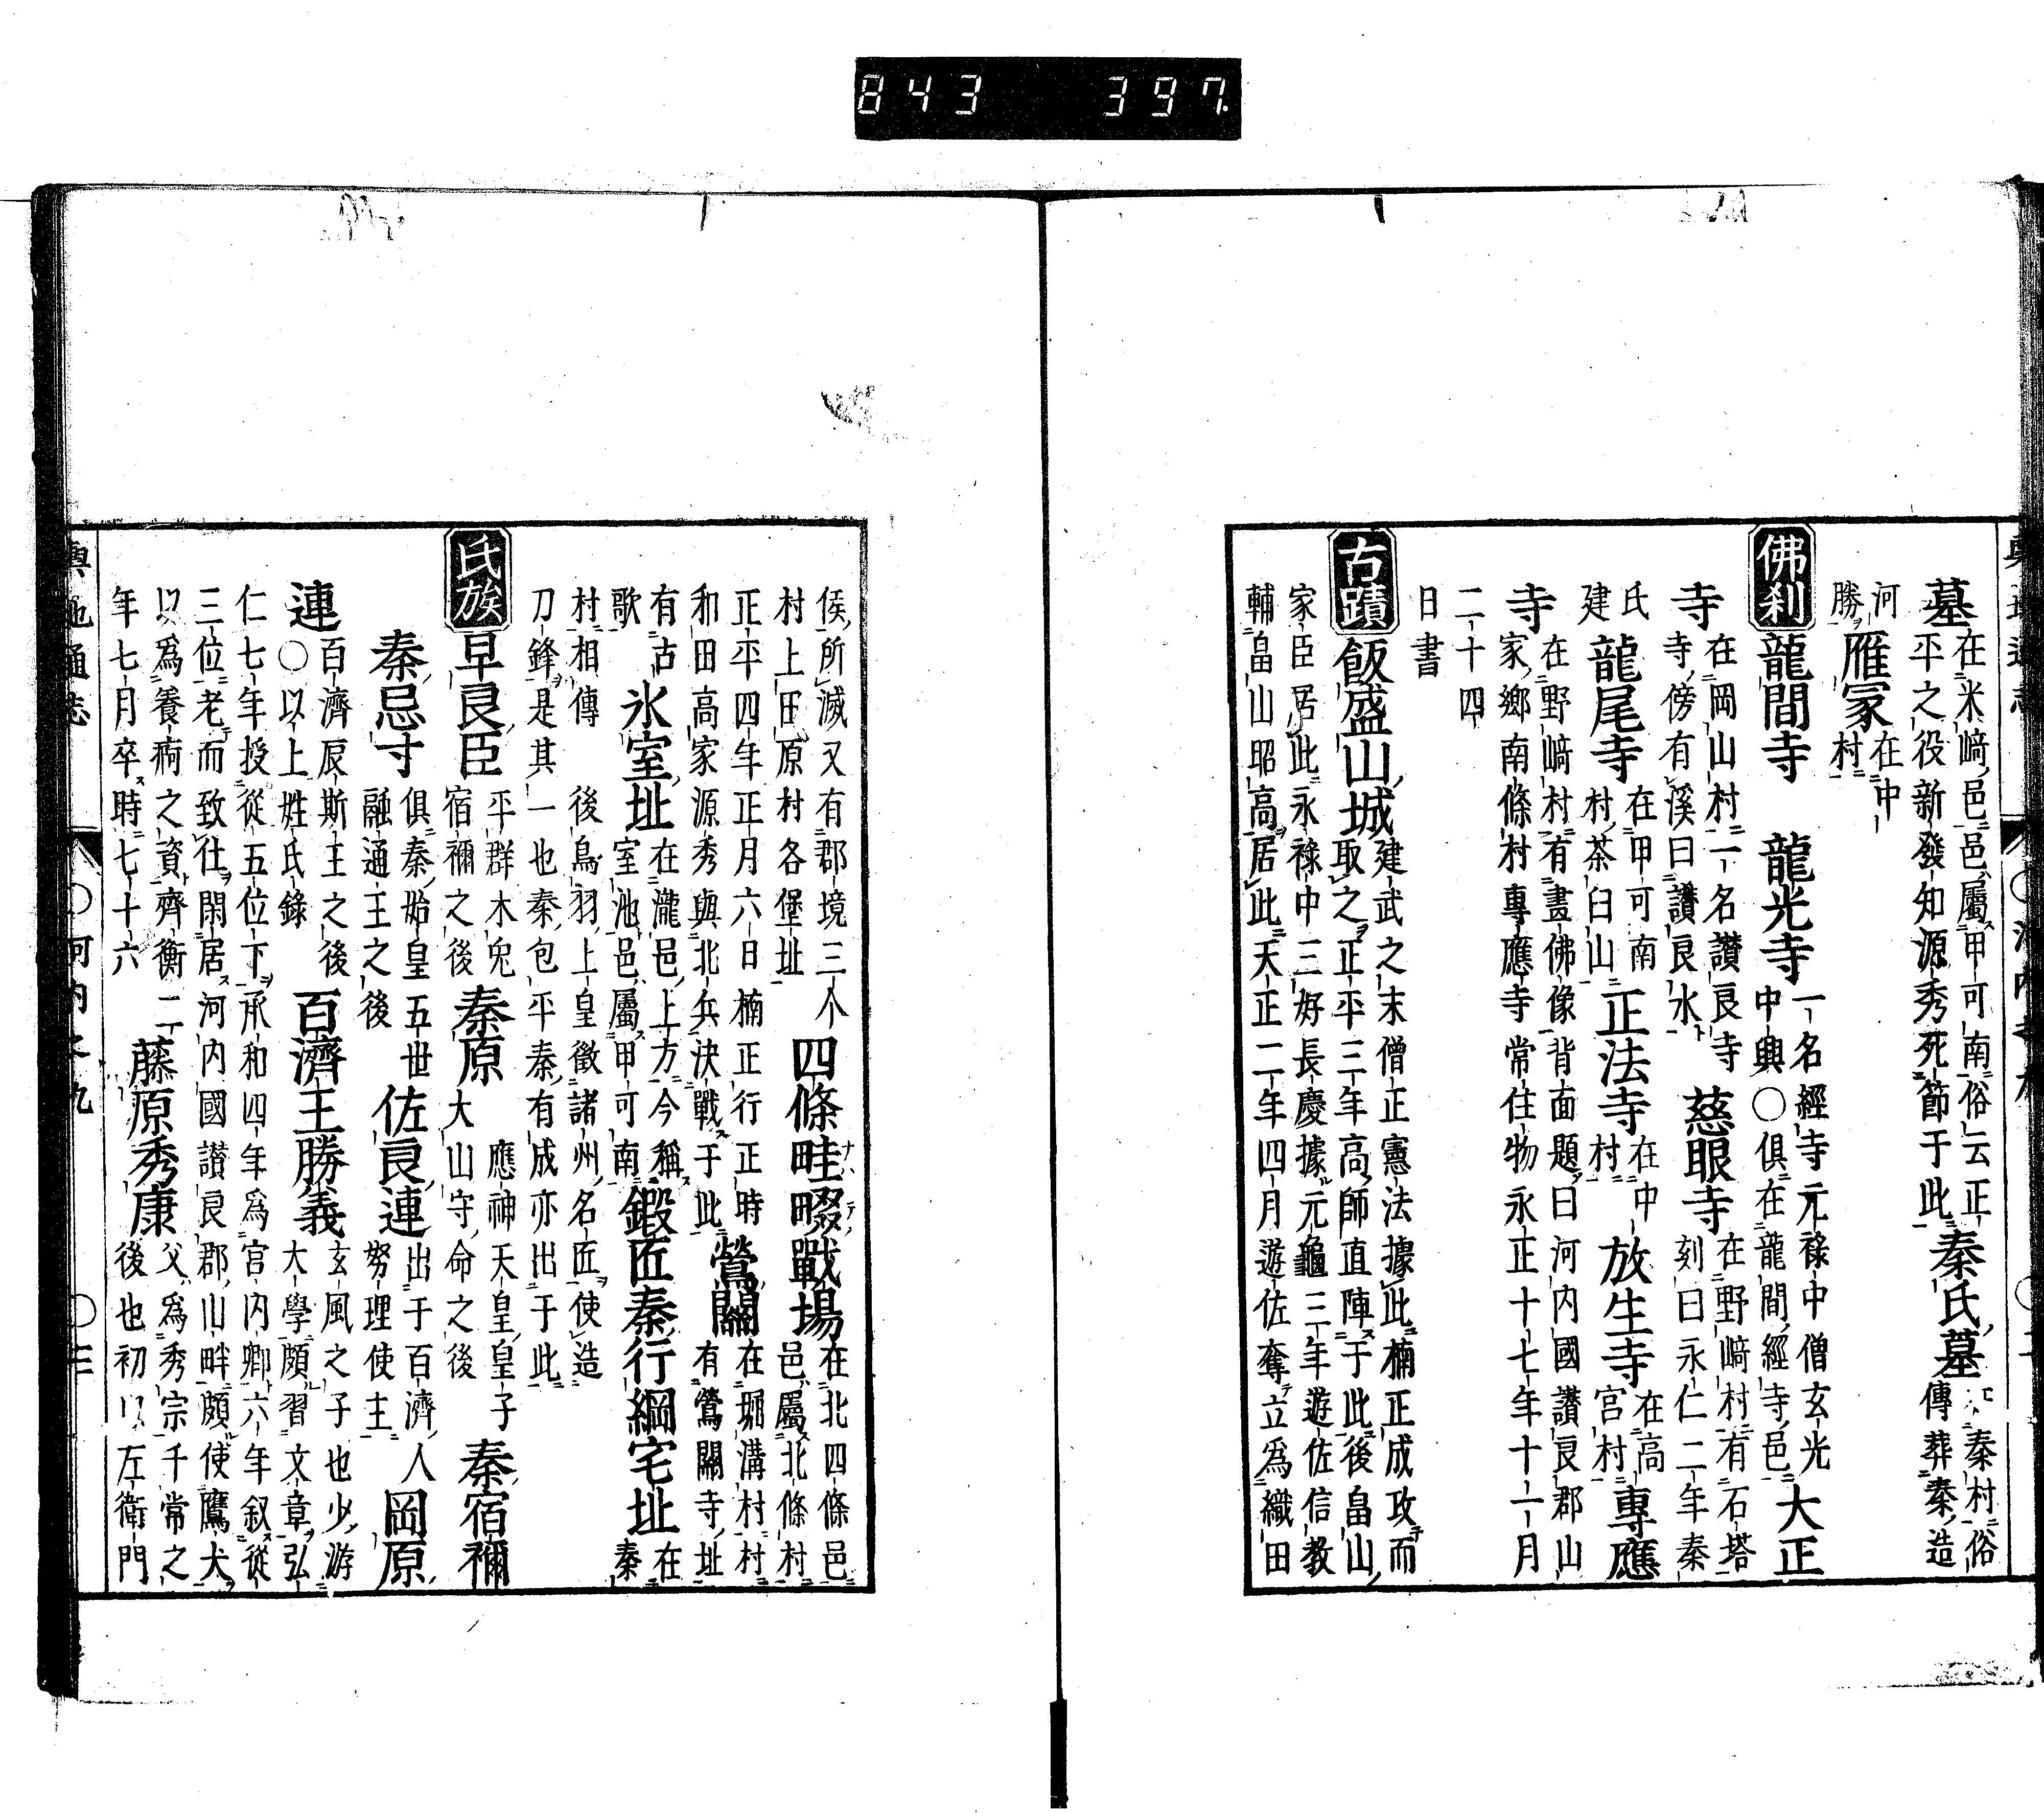 843 397
墓
在米﨑邑邑屬甲可南俗云正
平之役新發知源秀死節于此
秦氏墓
秦村俗
傳葬秦造
河
勝
雁冢
在中
村
佛刹
龍間寺 龍光寺
一名經寺元祿中僧玄光
中興○俱在龍間經寺邑
大正
寺
在岡山村一名讃良寺
寺傍有溪曰讃良水
慈眼寺
在野﨑村有石塔
刻曰永仁二年秦
氏
建
龍尾寺
在甲可南
村茶臼山
正法寺
在中
村
放生寺
在高
宮村
專應
寺
在野﨑村有畫佛像背面題曰河内國讃良郡山
家鄉南條村專應寺常住物永正十七年十一月
二十四
日書
古蹟
飯盛山城
建武之末僧正憲法據此楠正成攻而
取之正平三年高師直陣于此後畠山
家臣居此永祿中三好長慶據元龜三年遊佐信教
輔畠山昭高居此天正二年四月遊佐奪立爲織田
侯所滅又有郡境三个
村上田原村各堡址
四條畦畷戰場
在北四條邑
邑屬北條村
正平四年正月六日楠正行正時
和田高家源秀與北兵決戰于此
鶯關
在堀溝村村
有鶯關寺址
有古
歌
氷室址
在瀧邑上方今稱
室池邑屬甲可南
鍛匠秦行綱宅址
在
秦
村相傳後鳥羽上皇徵諸州名匠使造
刀鋒是其一也秦包平秦有成亦出于此
氏族
早良臣
平群木兔
宿禰之後
秦原
應神天皇皇子
大山守命之後
秦宿禰
秦忌寸
俱秦始皇五世
融通王之後
佐良連
出于百濟人
努理使主
岡原
連
百濟辰斯王之後
○以上姓氏錄
百濟王勝義
玄風之子也少游
大學頗習文章弘
仁七年授從五位下承和四年爲宮内卿六年叙從
三位老而致仕閑居河内國讃良郡山畔頗使鷹犬
以爲養痾之資齊衡二
年七月卒時七十六
藤原秀康
父爲秀宗千常之
後也初以左衛門
輿地通志 ○河内之九